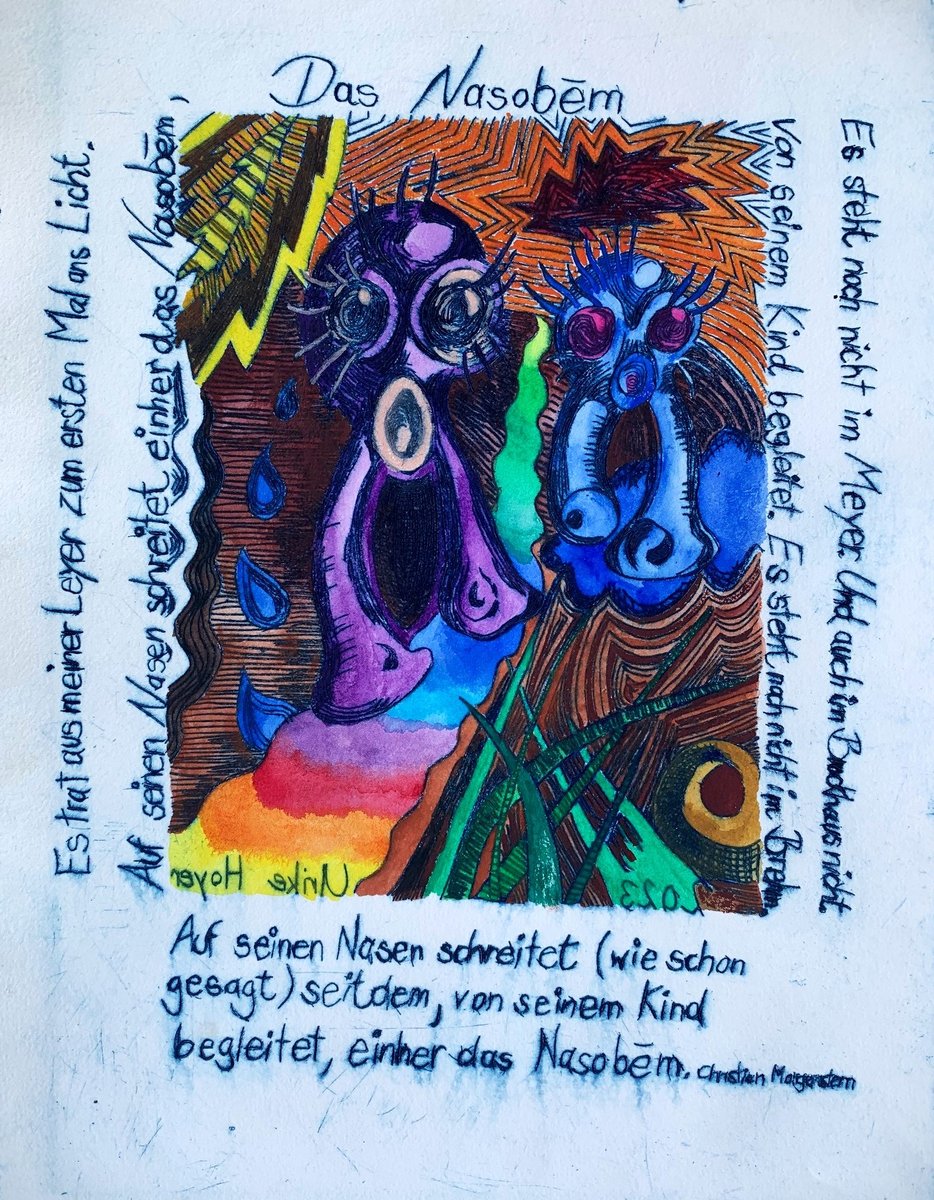 Das Nasobēm
Auf seinen Nasen schreitet einher das Nasobēm,
Von seinem Kind begleitet. Es steht noch nicht im Brehm.
Es steht noch nicht im Meyer. Und auch im Brockhaus nicht.
Es trat aus meiner Leyer zum ersten Mal ans Licht.
Auf seinen Nasen schreitet (wie schon
gesagt) seitdem, von seinem Kind
begleitet, einher das Nasobēm.
Christian Morgenstern
Ulrike Hoyer
2023